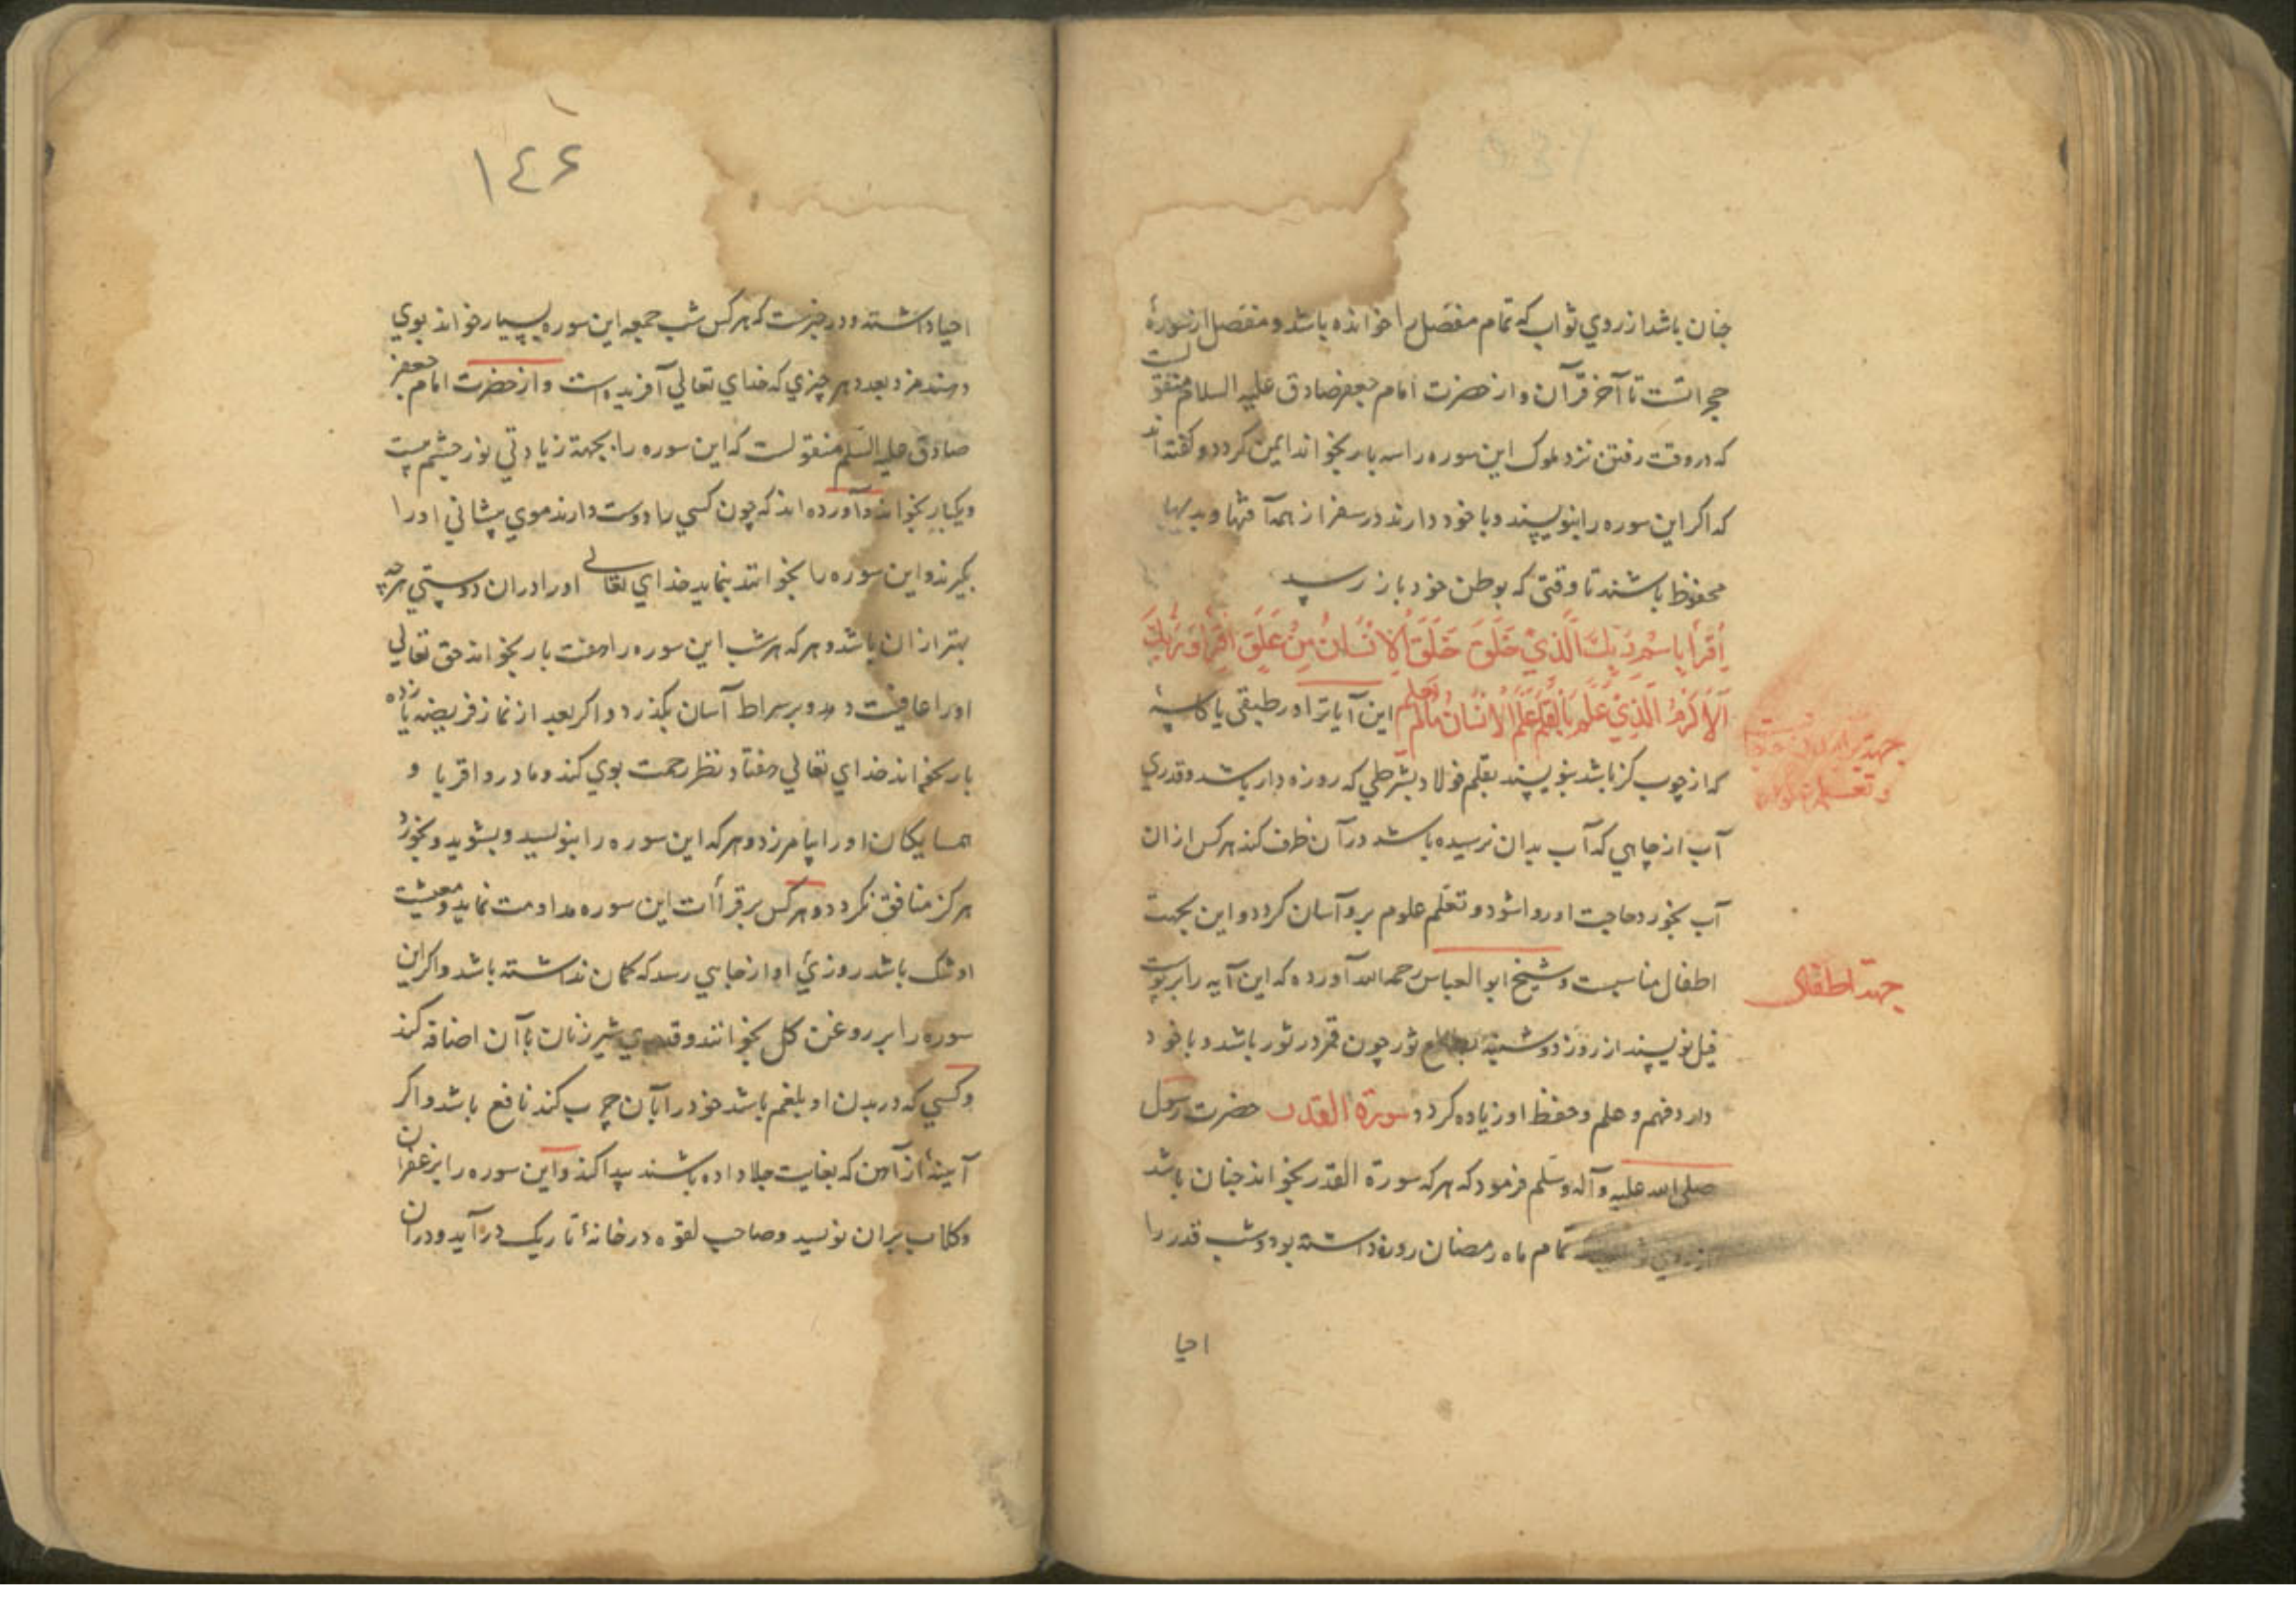 جنان باشد از روي ثواب که تمام مفصّل را خوانده باشد و مفصّل از سورهٔ
حجراتست تا آخر قرآن و از حضرت امام جعفر صادق عليه السلام منقولست
که در وقت رفتن نزد ملوک اين سوره را سه بار بخواند ايمن کردد و کفته‌اند
که اکر اين سوره را بنويسند و با خود دارند در سفر از همه آفتها و بديها
محفوظ باشند تا وقتي که بوطن خود باز رسيد
اِقْرَأْ بِاسْمِ رَبِّكَ الَّذِيْ خَلَقَ خَلَقَ الْاِنْسَانَ مِنْ عَلَقٍ اِقْرَأْ وَرَبُّكَ
الْاَكْرَمُ الَّذِيْ عَلَّمَ بِالْقَلَمِ عَلَّمَ الْاِنْسَانَ مَا لَمْ يَعْلَم اين آياترا در طبقي يا کاسهٔ
که از چوب کز باشد بنويسند بقلم فولاد بشرطي که روزه دار باشد و قدري
آب از چاهي که آب بدان نرسيده باشد در آن ظرف کند هر کس از ان
آب بخورد حاجت او روا شود و تعلّم علوم برو آسان کردد و اين بجهت
اطفال مناسبست و شيخ ابو العباس رحمه الله آورده که اين آيه را بر پوست
فيل نويسند از روز دوشنبه بطالع ثور چون قمر در ثور باشد و با خود
دارد فهم و علم و حفظ او زياده کردد سورة القدر حضرت رسول
صلى الله عليه وآله وسلم فرمود که هر که سورة القدر بخواند جنان باشد
از روي ثواب که تمام ماه رمضان روزه داشته بود و شب قدر را
احيا
جهة
و تعليم
جهة اطفال
١٤٦
احيا داشته و در خبرست که هر کس شب جمعه اين سوره بسيار خواند بوي
دهند مزد بعدد هر چيزي که خداي تعالي آفريده است و از حضرت امام جعفر
صادق عليه السّلم منقولست که اين سوره را بجهة زيادتي نور چشم بيست
و يکبار بخواند و آورده‌اند که چون کسي را دوست دارند موي پيشاني او را
بکيرند و اين سوره را بخوانند بنمايد خداي تعالى او را در ان دوستي هرچه
بهتر از ان باشد و هر که هر شب اين سوره را هفت بار بخواند حق تعالي
او را عافيت دهد و بر سراط آسان بکذرد و اکر بعد از نماز فريضه يازده
بار بخواند خداي تعالي هفتاد نظر رحمت بوي کند و مادر و اقربا و
همسايکان او را بيامرزد و هر که اين سوره را بنويسد و بشويد و بخورد
هرکز منافق نکردد و هر کس بر قراأت اين سوره مداومت نمايد و معيشت
او تنک باشد روزئ او از جايي رسد که کمان نداشته باشد و اکر اين
سوره را بر روغن کل بخوانند و قدري شير زنان بآن اضافه کند
و کسي که در بدن او بلغم باشد خود را بآن چرب کند نافع باشد و اکر
آيينهٔ از آهن که بغايت جلا داده باشند پيدا کند و اين سوره را بزعفران
و کلاب بر ان نويسد و صاحب لقوه در خانهٔ تاريک در آيد و در ان